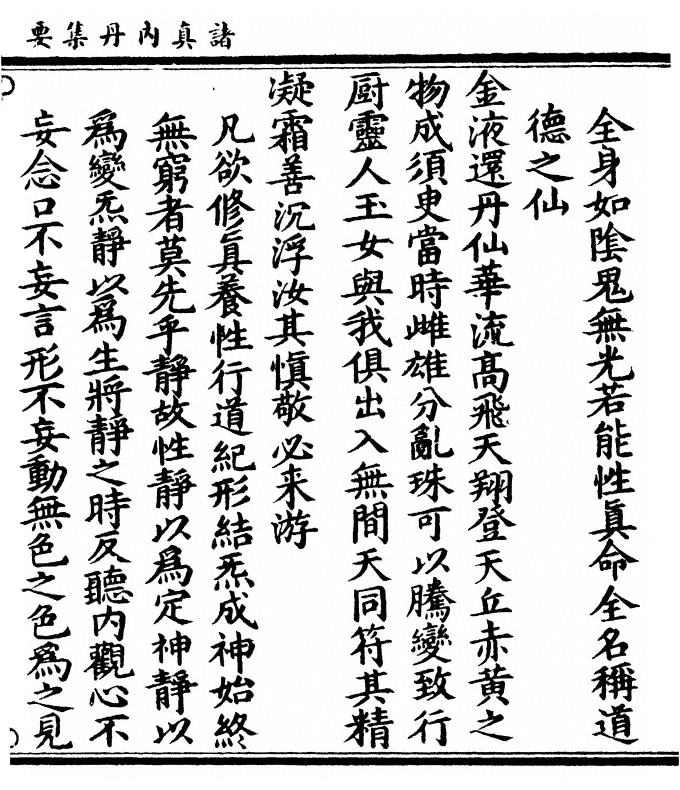 諸真內丹集要
全身如陰鬼無光若能性真命全名稱道
德之仙
金液還丹仙華流高飛天翔登天丘赤黃之
物成須臾當時雌雄分亂珠可以騰變致行
厨靈人玉女與我俱出入無間天同符其精
凝霜善沉浮汝其慎敬必来游
凡欲修真養性行道紀形結炁成神始終
無窮者莫先乎靜故性靜以為定神靜以
為變炁靜以為生將靜之時反聽內觀心不
妄念口不妄言形不妄動無色之色為之見